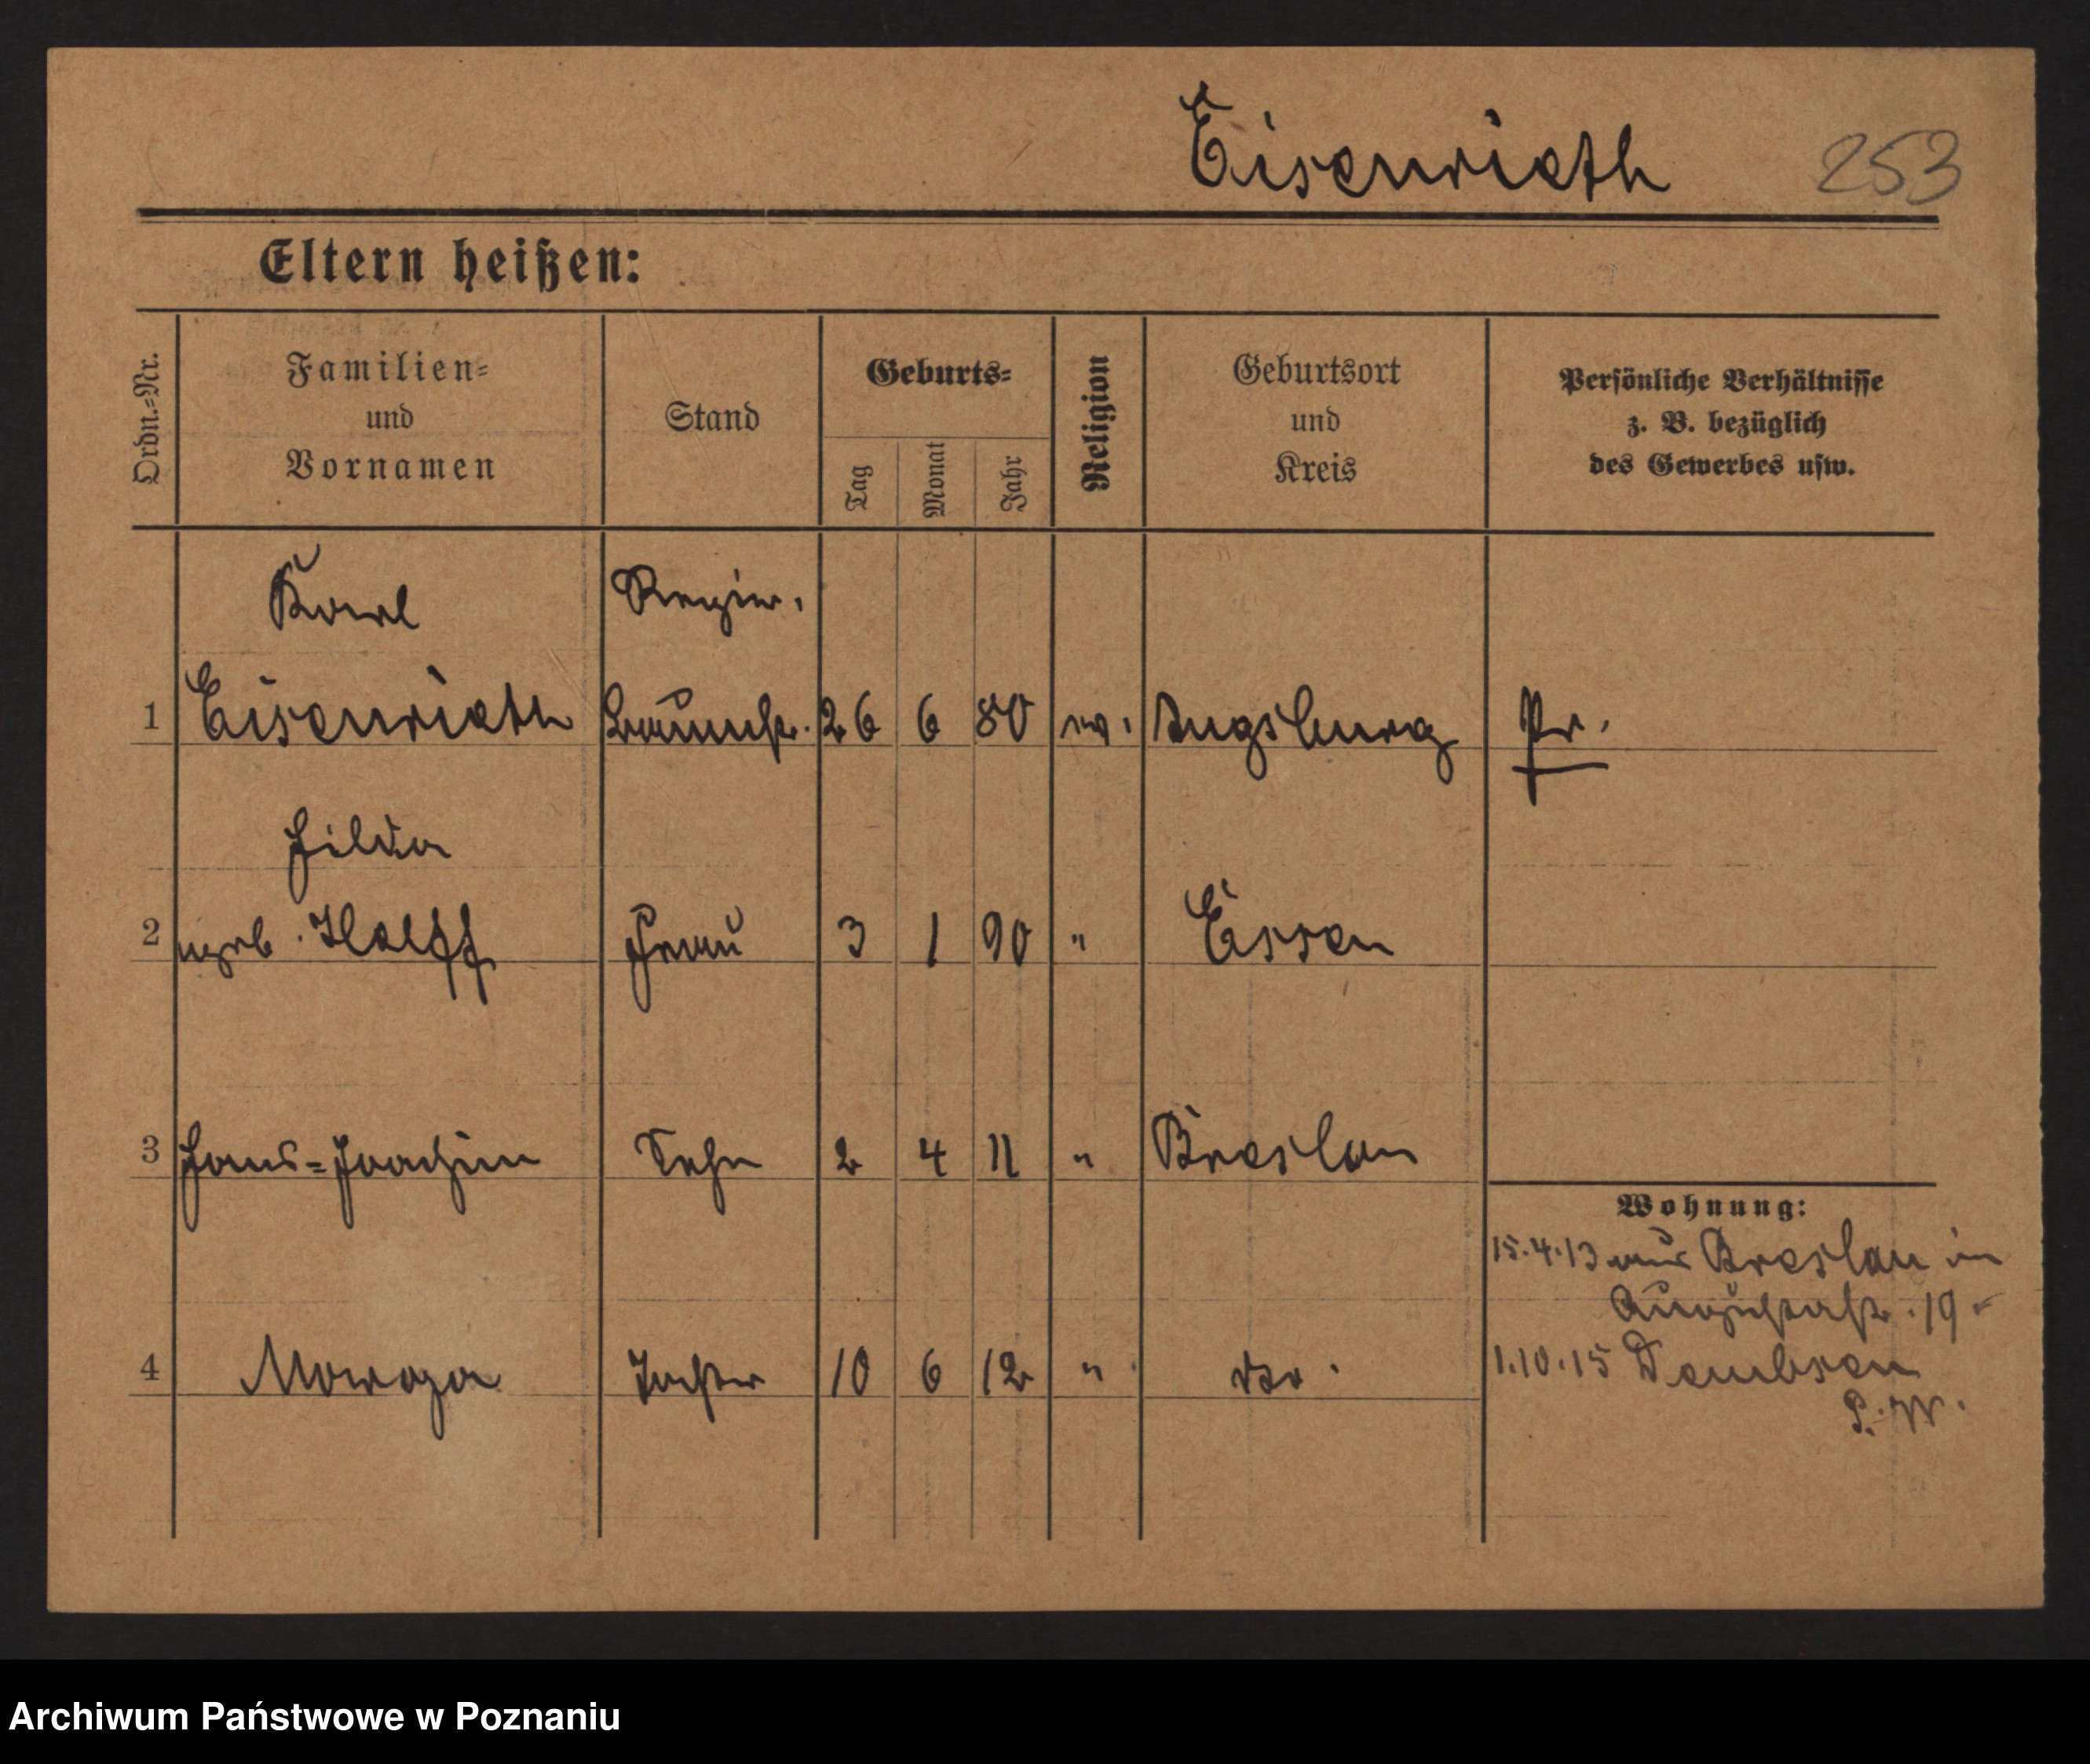 Eisenrieth 253
Eltern heißen:
Ordn.=Nr.
Familien=
und
Vornamen
Stand
Geburts=
Tag
Monat
Jahr
Religion
Geburtsort
und
Kreis
Persönliche Verhältnisse
z. B. bezüglich
des Gewerbes usw.
Karl Regier.
1 Eisenrieth Baumstr. 26 6 80 ev. Augsburg Pr.
Hilda
2 geb. Halff Frau 3 1 90 " Essen
3 Hans=Joachim Sohn 2 4 11 " Breslau
Wohnung:
15.4.13 aus Breslau in
Augustastr. 19
4 Tochter 10 6 12 " do. 1.10.15 Dembsen
P. W.
Archiwum Państwowe w Poznaniu